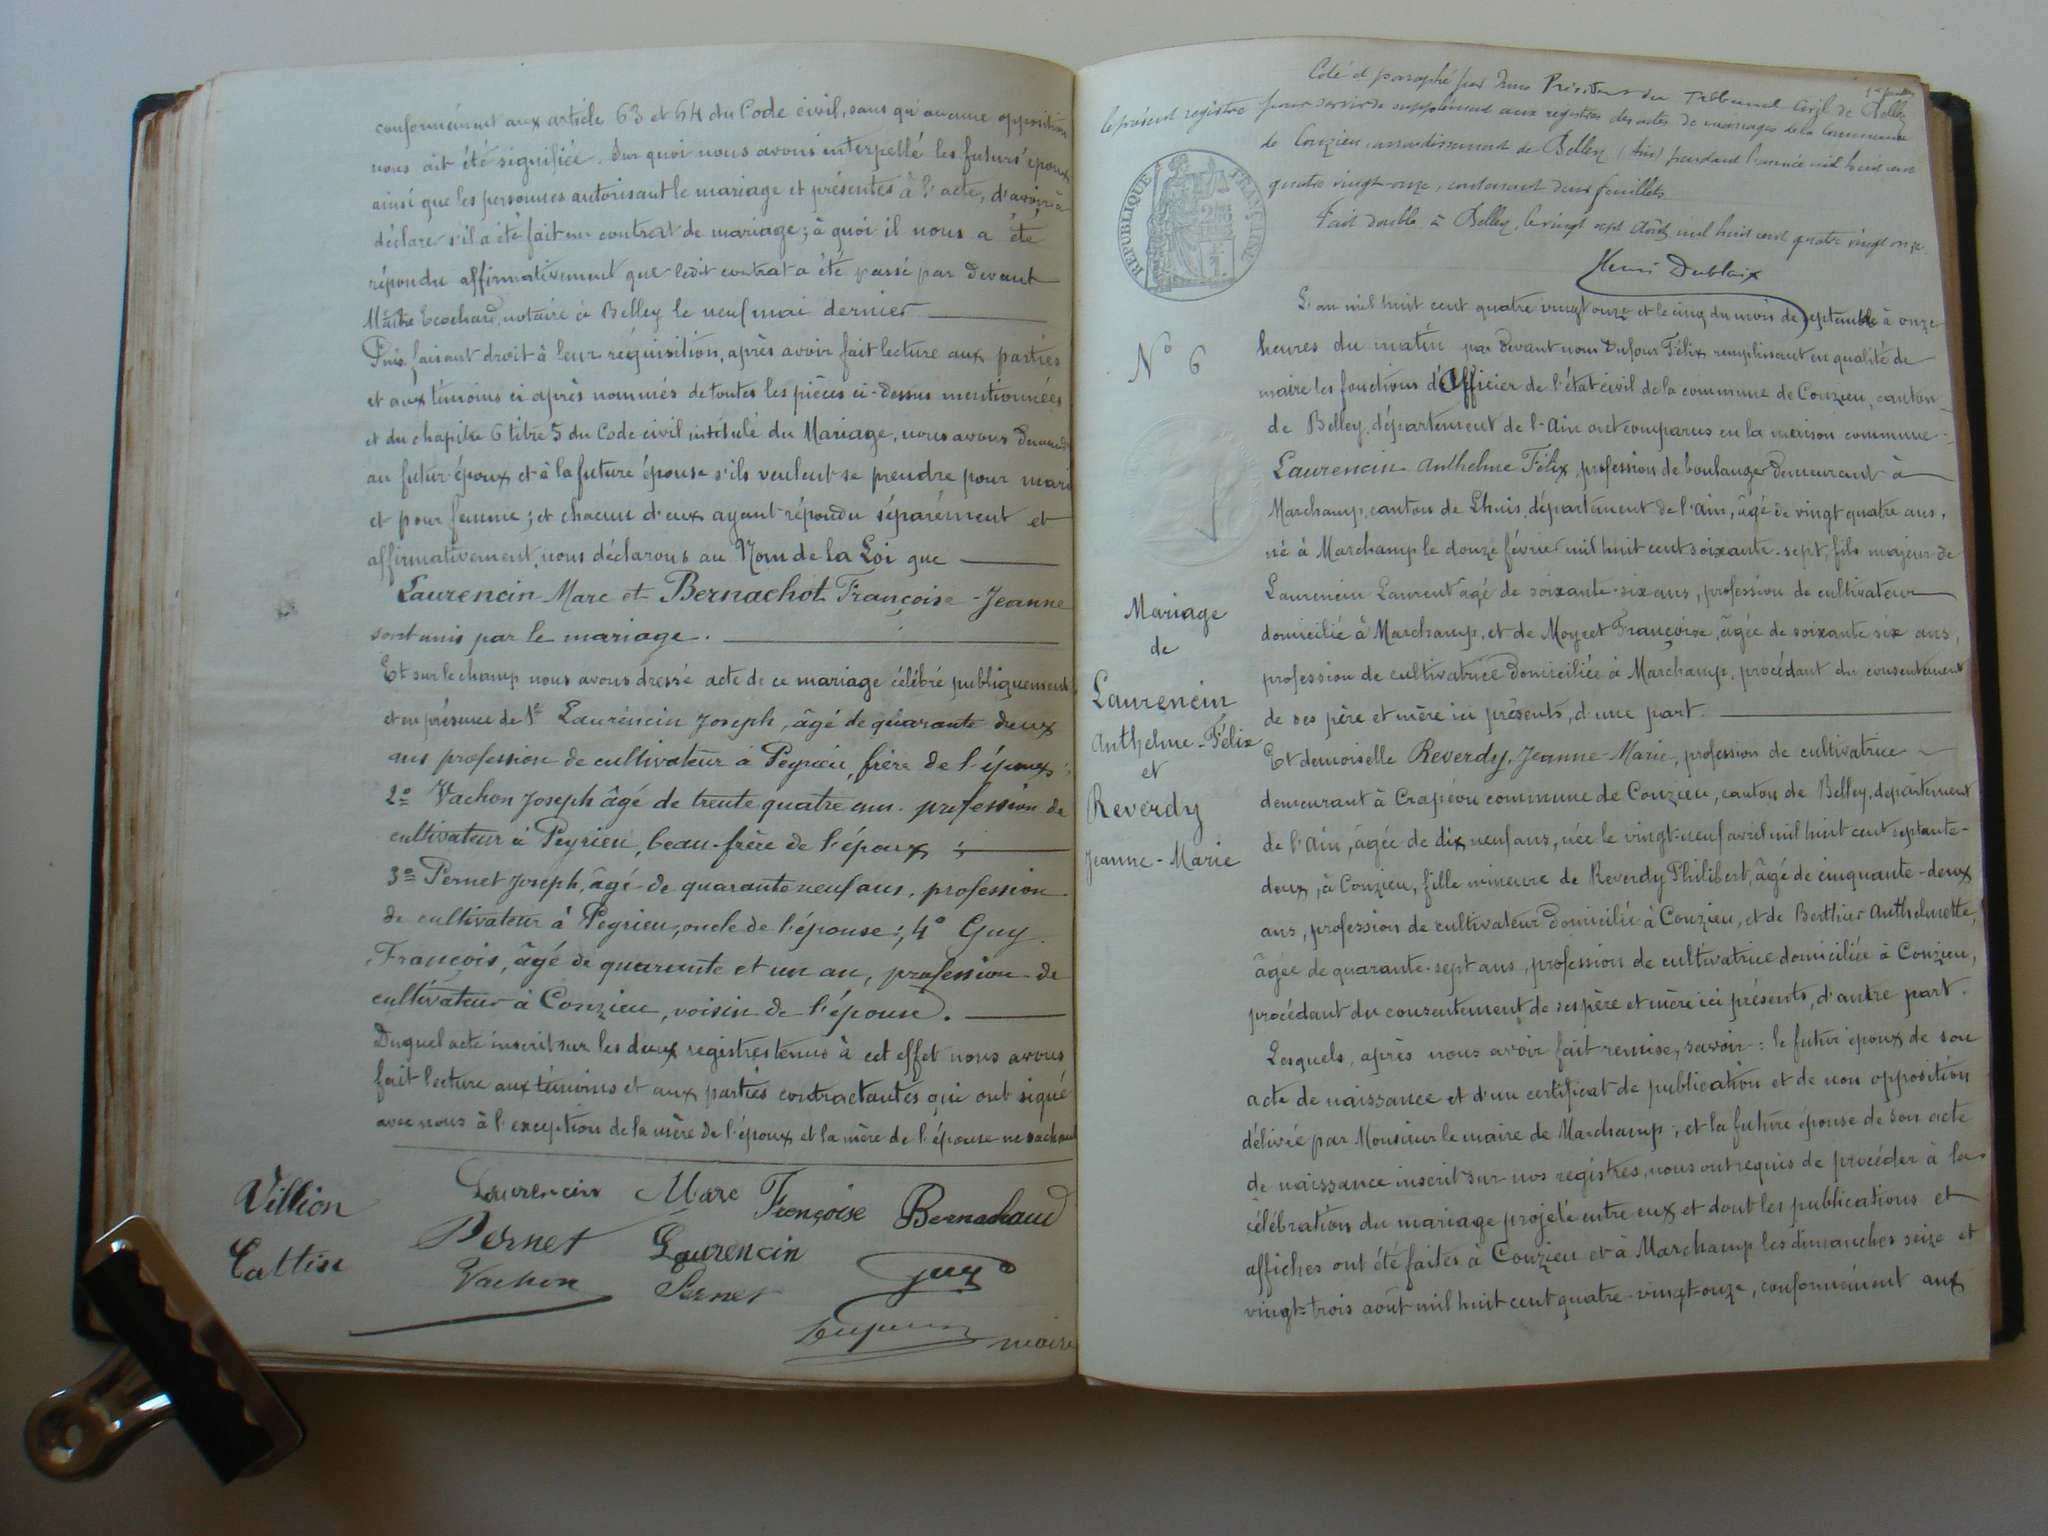 conformément aux article 63 et 64 du Code civil, sans qu'aucune opposition
nous ait été signifiée. Sur quoi nous avons interpellé les futurs époux
ainsi que les personnes autorisant le mariage et présentes à l'acte, d'avoir à
déclare s'il a été fait un contrat de mariage; à quoi il nous a été
répondu affirmativement que ledit contrat a été passé par devant
Maître Ecochard, notaire à Belley le neuf mai dernier
Puis faisant droit à leur réquisition, après avoir fait lecture aux parties
et aux témoins ci après nommés de toutes les pièces ci-dessus mentionnées
et du chapitre 6 titre 5 du Code civil intitulé du Mariage, nous avons demandé
au futur époux et à la future épouse s'ils veulent se prendre pour mari
et pour femme; et chacun d'eux ayant répondu séparément et
affirmativement, nous déclarons au Nom de la Loi que
Laurencin Marc et Bernachot Françoise-Jeanne
sont unis par le mariage.
Et sur le champ nous avons dressé acte de ce mariage célébré publiquement
et en présence de 1º Laurencin Joseph, âgé de quarante deux
ans profession de cultivateur à Peyrieu, frère de l'époux;
2º Vachon Joseph âgé de trente quatre ans. profession de
cultivateur à Peyrieu, beau-frère de l'époux;
3º Pernet Joseph, âgé de quarante neuf ans, profession
de cultivateur à Peyrieu, oncle de l'épouse; 4º Guy
François, âgé de quarante et un an, profession de
cultivateur à Conzieu, voisin de l'épouse.
Duquel acte inscrit sur les deux registres tenus à cet effet nous avons
fait lecture aux témoins et aux parties contractantes qui ont signé
avec nous à l'exception de la mère de l'époux et la mère de l'épouse ne sachant
Villion Laurencin Marc Françoise Bernachaud
Pernet Laurencin
Cattin Vachon Pernet Guy
maire
Coté et paraphé par Nous Président du Tribunal Civil de Belley
le présent registre pour servir de supplément aux registres des actes de mariages de la Commune
de Conzieu, arrondissement de Belley (Ain) pendant l'année mil huit cent
quatre vingt-onze, contenant deux feuillets
Fait double à Belley, le vingt sept Août mil huit cent quatre vingt onze
Henri Dublaix
REPUBLIQUE FRANÇAISE
L'an mil huit cent quatre vingt onze et le cinq du mois de septembre à onze
Nº 6
heures du matin par devant nous Dufour Félix remplissant en qualité de
maire les fonctions d'Officier de l'état civil de la commune de Conzieu, canton
de Belley, département de l'Ain ont comparus en la maison commune:
Laurencin Anthelme Félix, profession de boulanger demeurant à
Marchamp, canton de Lhuis, département de l'Ain, âgé de vingt quatre ans,
né à Marchamp le douze février mil huit cent soixante-sept, fils majeur de
Laurencin Laurent âgé de soixante-six ans, profession de cultivateur
domicilié à Marchamp, et de Moyret Françoise, âgée de soixante six ans,
profession de cultivatrice domiciliée à Marchamp, procédant du consentement
de ses père et mère ici présents, d'une part.
Mariage
de
Laurencin
Anthelme-Félix
et
Reverdy
Jeanne-Marie
Et demoiselle Reverdy, Jeanne-Marie, profession de cultivatrice
demeurant à Crapéou commune de Conzieu, canton de Belley, département
de l'Ain, âgée de dix neuf ans, née le vingt-neuf avril mil huit cent septante-
deux, à Conzieu, fille mineure de Reverdy Philibert, âgé de cinquante-deux
ans, profession de cultivateur domicilié à Conzieu, et de Berthier Anthelmette,
âgée de quarante-sept ans, profession de cultivatrice domiciliée à Conzieu,
procédant du consentement de ses père et mère ici présents, d'autre part.
Lesquels, après nous avoir fait remise, savoir: le futur époux de son
acte de naissance et d'un certificat de publication et de non opposition
délivré par Monsieur le maire de Marchamp; et la future épouse de son acte
de naissance inscrit sur nos registres, nous ont requis de procéder à la
célébration du mariage projeté entre eux et dont les publications et
affiches ont été faites à Conzieu et à Marchamp les dimanches seize et
vingt-trois août mil huit cent quatre-vingt-onze, conformément aux